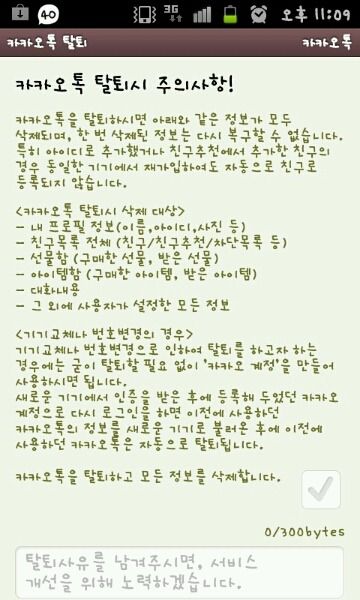 40 3G 오후 11:09
카카오톡 탈퇴 카카오톡
카카오톡 탈퇴시 주의사항!
카카오톡을 탈퇴하시면 아래와 같은 정보가 모두
삭제되며, 한 번 삭제된 정보는 다시 복구할 수 없습니다.
특히 아이디로 추가했거나 친구추천에서 추가한 친구의
경우 동일한 기기에서 재가입하여도 자동으로 친구로
등록되지 않습니다.
<카카오톡 탈퇴시 삭제 대상>
- 내 프로필 정보(이름,아이디,사진 등)
- 친구목록 전체 (친구/친구추천/차단목록 등)
- 선물함 (구매한 선물, 받은 선물)
- 아이템함 (구매한 아이템, 받은 아이템)
- 대화내용
- 그 외에 사용자가 설정한 모든 정보
<기기교체나 번호변경의 경우>
기기교체나 번호변경으로 인하여 탈퇴를 하고자 하는
경우에는 굳이 탈퇴할 필요 없이 '카카오 계정'을 만들어
사용하시면 됩니다.
새로운 기기에서 인증을 받은 후에 등록해 두었던 카카오
계정으로 다시 로그인을 하면 이전에 사용하던
카카오톡의 정보를 새로운 기기로 불러온 후에 이전에
사용하던 카카오톡은 자동으로 탈퇴됩니다.
카카오톡을 탈퇴하고 모든 정보를 삭제합니다.
0/300bytes
탈퇴사유를 남겨주시면, 서비스
개선을 위해 노력하겠습니다.